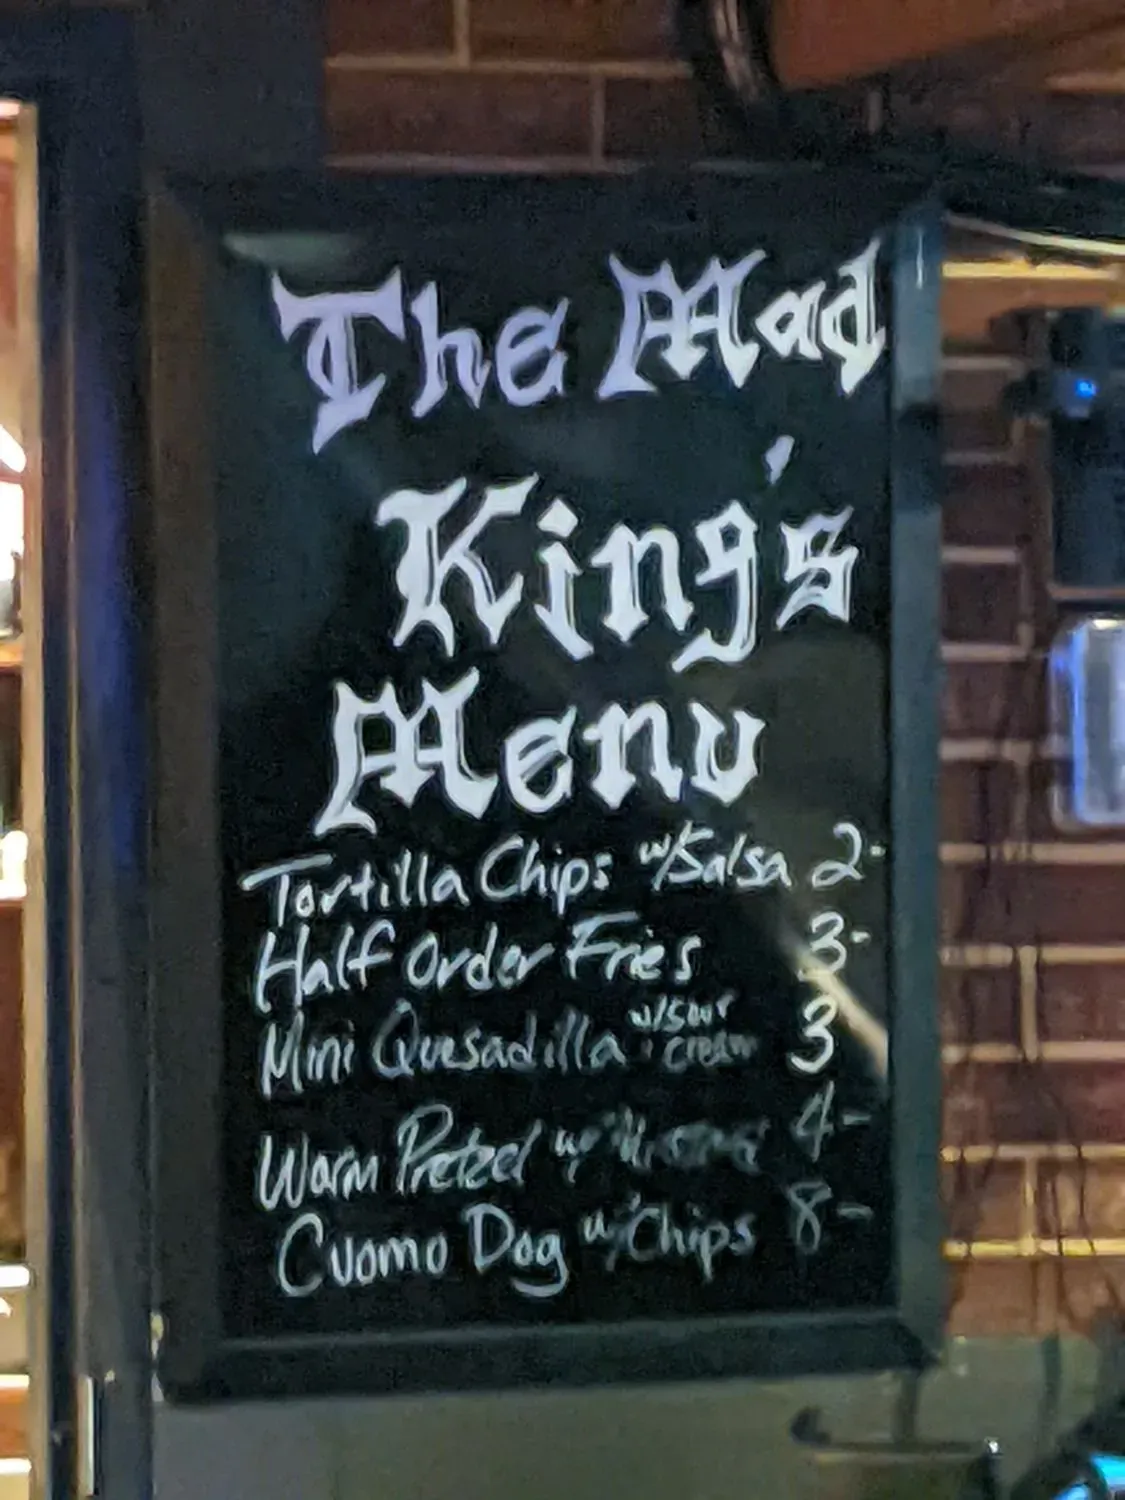 The Mad
King's
Menu
Tortilla Chips w/Salsa 2-
Half Order Fries 3-
Mini Quesadilla w/sour cream 3
Warm Pretzel w/ Mustard 4-
Cuomo Dog w/Chips 8-